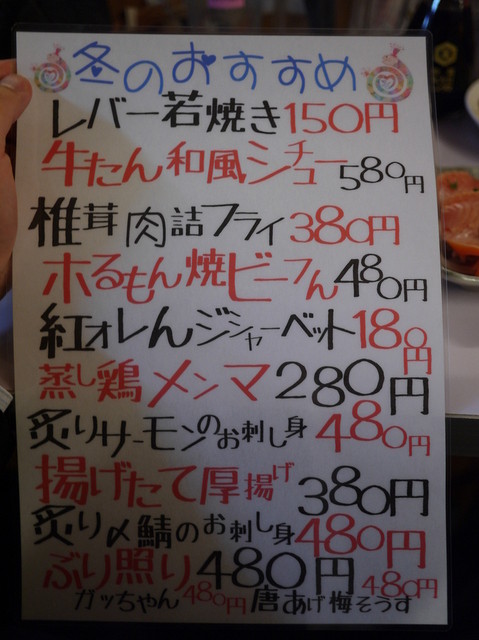 冬のおすすめ
レバー若焼き150円
牛たん和風シチュー580円
椎茸肉詰フライ380円
ホるもん焼ビーフん480円
紅オレんジシャーベット180円
蒸し鶏メンマ280円
炙りサーモンのお刺し身480円
揚げたて厚揚げ380円
炙り〆鯖のお刺し身480円
ぶり照り480円
ガッちゃん480円 唐あげ梅そうす480円